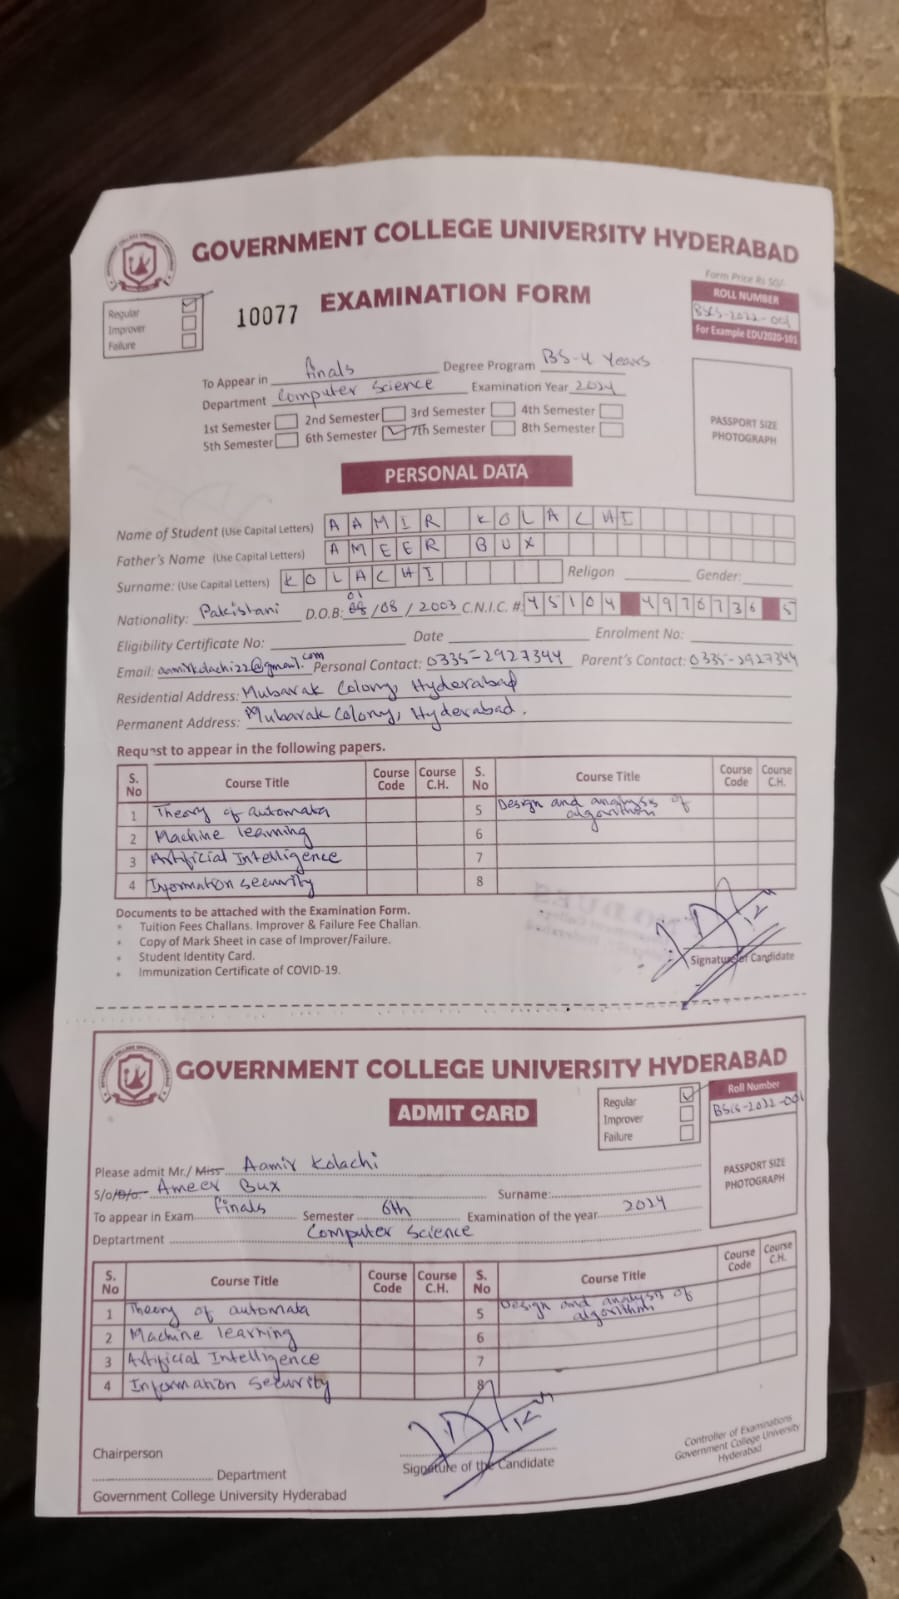 GOVERNMENT COLLEGE UNIVERSITY HYDERABAD
Form Price Rs 50/-
EXAMINATION FORM
10077
Regular
Improver
Failure
ROLL NUMBER
BSCS-2022-001
For Example EDU2020-101
To Appear in finals Degree Program BS-4 Years
Department Computer Science Examination Year 2024
1st Semester 2nd Semester 3rd Semester 4th Semester
5th Semester 6th Semester 7th Semester 8th Semester
PASSPORT SIZE
PHOTOGRAPH
PERSONAL DATA
Name of Student (Use Capital Letters) AAMIR KOLACHI
Father's Name (Use Capital Letters) AMEER BUX
Surname: (Use Capital Letters) KOLACHI Religon Gender:
Nationality: Pakistani D.O.B: 01/08/2003 C.N.I.C. #: 45104 4976736 5
Eligibility Certificate No: Date Enrolment No:
Email: aamirkolachi22@gmail.com Personal Contact: 0335-2927344 Parent's Contact: 0335-2927344
Residential Address: Mubarak Colony, Hyderabad
Permanent Address: Mubarak Colony, Hyderabad.
Request to appear in the following papers.
S. No Course Title Course Code Course C.H. S. No Course Title Course Code Course C.H.
1 Theory of automata 5 Design and analysis of algorithm
2 Machine learning 6
3 Artificial Intelligence 7
4 Information security 8
Documents to be attached with the Examination Form.
• Tuition Fees Challans. Improver & Failure Fee Challan.
• Copy of Mark Sheet in case of Improver/Failure.
• Student Identity Card.
• Immunization Certificate of COVID-19.
NO DUES
Signature of Candidate
GOVERNMENT COLLEGE UNIVERSITY HYDERABAD
ADMIT CARD
Regular
Improver
Failure
Roll Number
BSCS-2022-001
PASSPORT SIZE
PHOTOGRAPH
Please admit Mr./ Miss Aamir Kolachi
S/o/D/o Ameer Bux Surname:
To appear in Exam finals Semester 6th Examination of the year 2024
Deptartment Computer Science
S. No Course Title Course Code Course C.H. S. No Course Title Course Code Course C.H.
1 Theory of automata 5 Design and analysis of algorithm
2 Machine learning 6
3 Artificial Intelligence 7
4 Information Security 8
Chairperson
Department
Government College University Hyderabad
Signature of the Candidate
Controller of Examinations
Government College University
Hyderabad